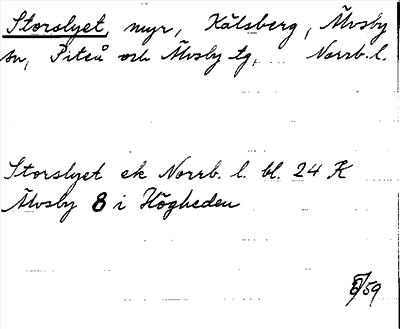 Storslyet, myr, Kälsberg, Älvsby
sn, Piteå och Älvsby tg, Norrb. l.
Storslyet ek Norrb. l. bl. 24 K
Älvsby 8 i Högheden
/59